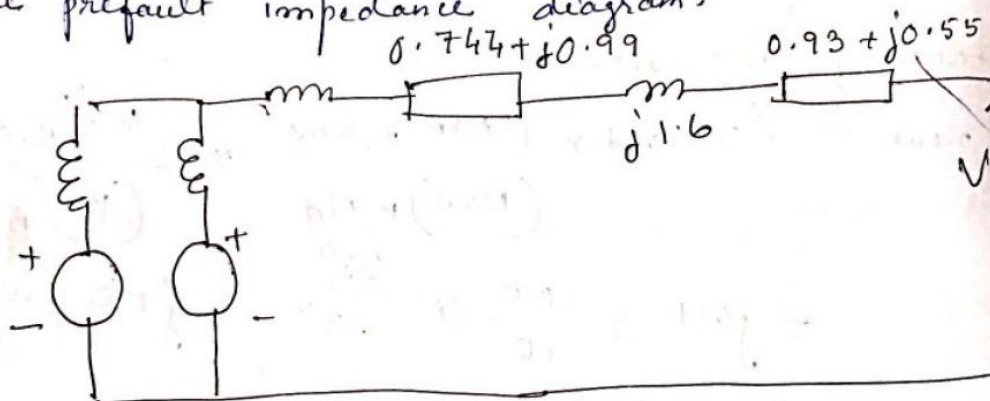 prefault impedance diagram.
0.744+j0.99
0.93 + j0.55
j1.6
V
+
+
-
-